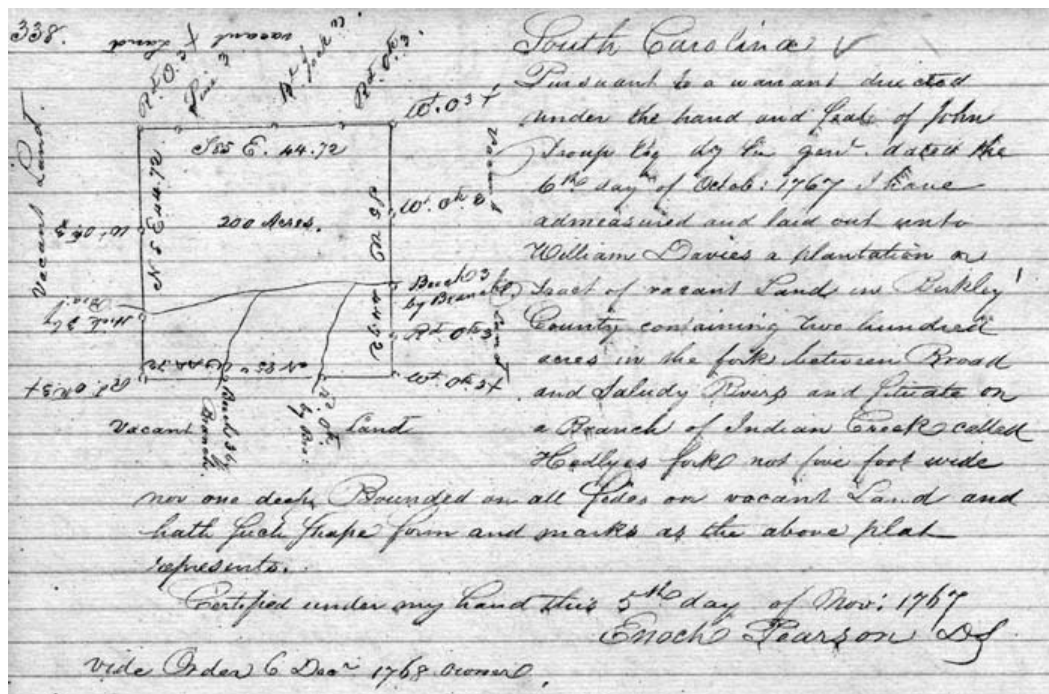 338.
vacant Land
Rd. O. 3 X
Pine 3
Bk. Jack 3
Rd. Ok. 3.
Wt. O 3 X
S 85 E. 44.72
Vacant Land
N 5 E 44.72
200 Acres.
S 5 W 44.72
Wt. Ok 3
Wt. Ok 3
Vacant Land
Beech 3
by Branch
Hick 3 by
Rd. Ok 3
Rd. Ok 3 X
N 85 W 44.72
Wt. Ok 3 X
Vacant Land
Beech 3 by
Branch
Rd. Ok
by Bra:
South Carolina
Pursuant to a warrant directed
under the hand and Seal of John
Troup Esq dy Sur genl. dated the
6th day of Octob: 1767 I have
admeasured and laid out unto
William Davies a plantation or
tract of vacant Land in Berkley
County containing two hundred
acres in the fork between Broad
and Saludy Rivers and Situate on
a Branch of Indian Creek called
Hedlyes fork not five foot wide
nor one deep Bounded on all Sides on vacant Land and
hath Such Shape form and marks as the above plat
represents.
Certified under my hand this 5th day of Nov: 1767
Enoch Pearson DS
vide Order 6 Decr. 1768